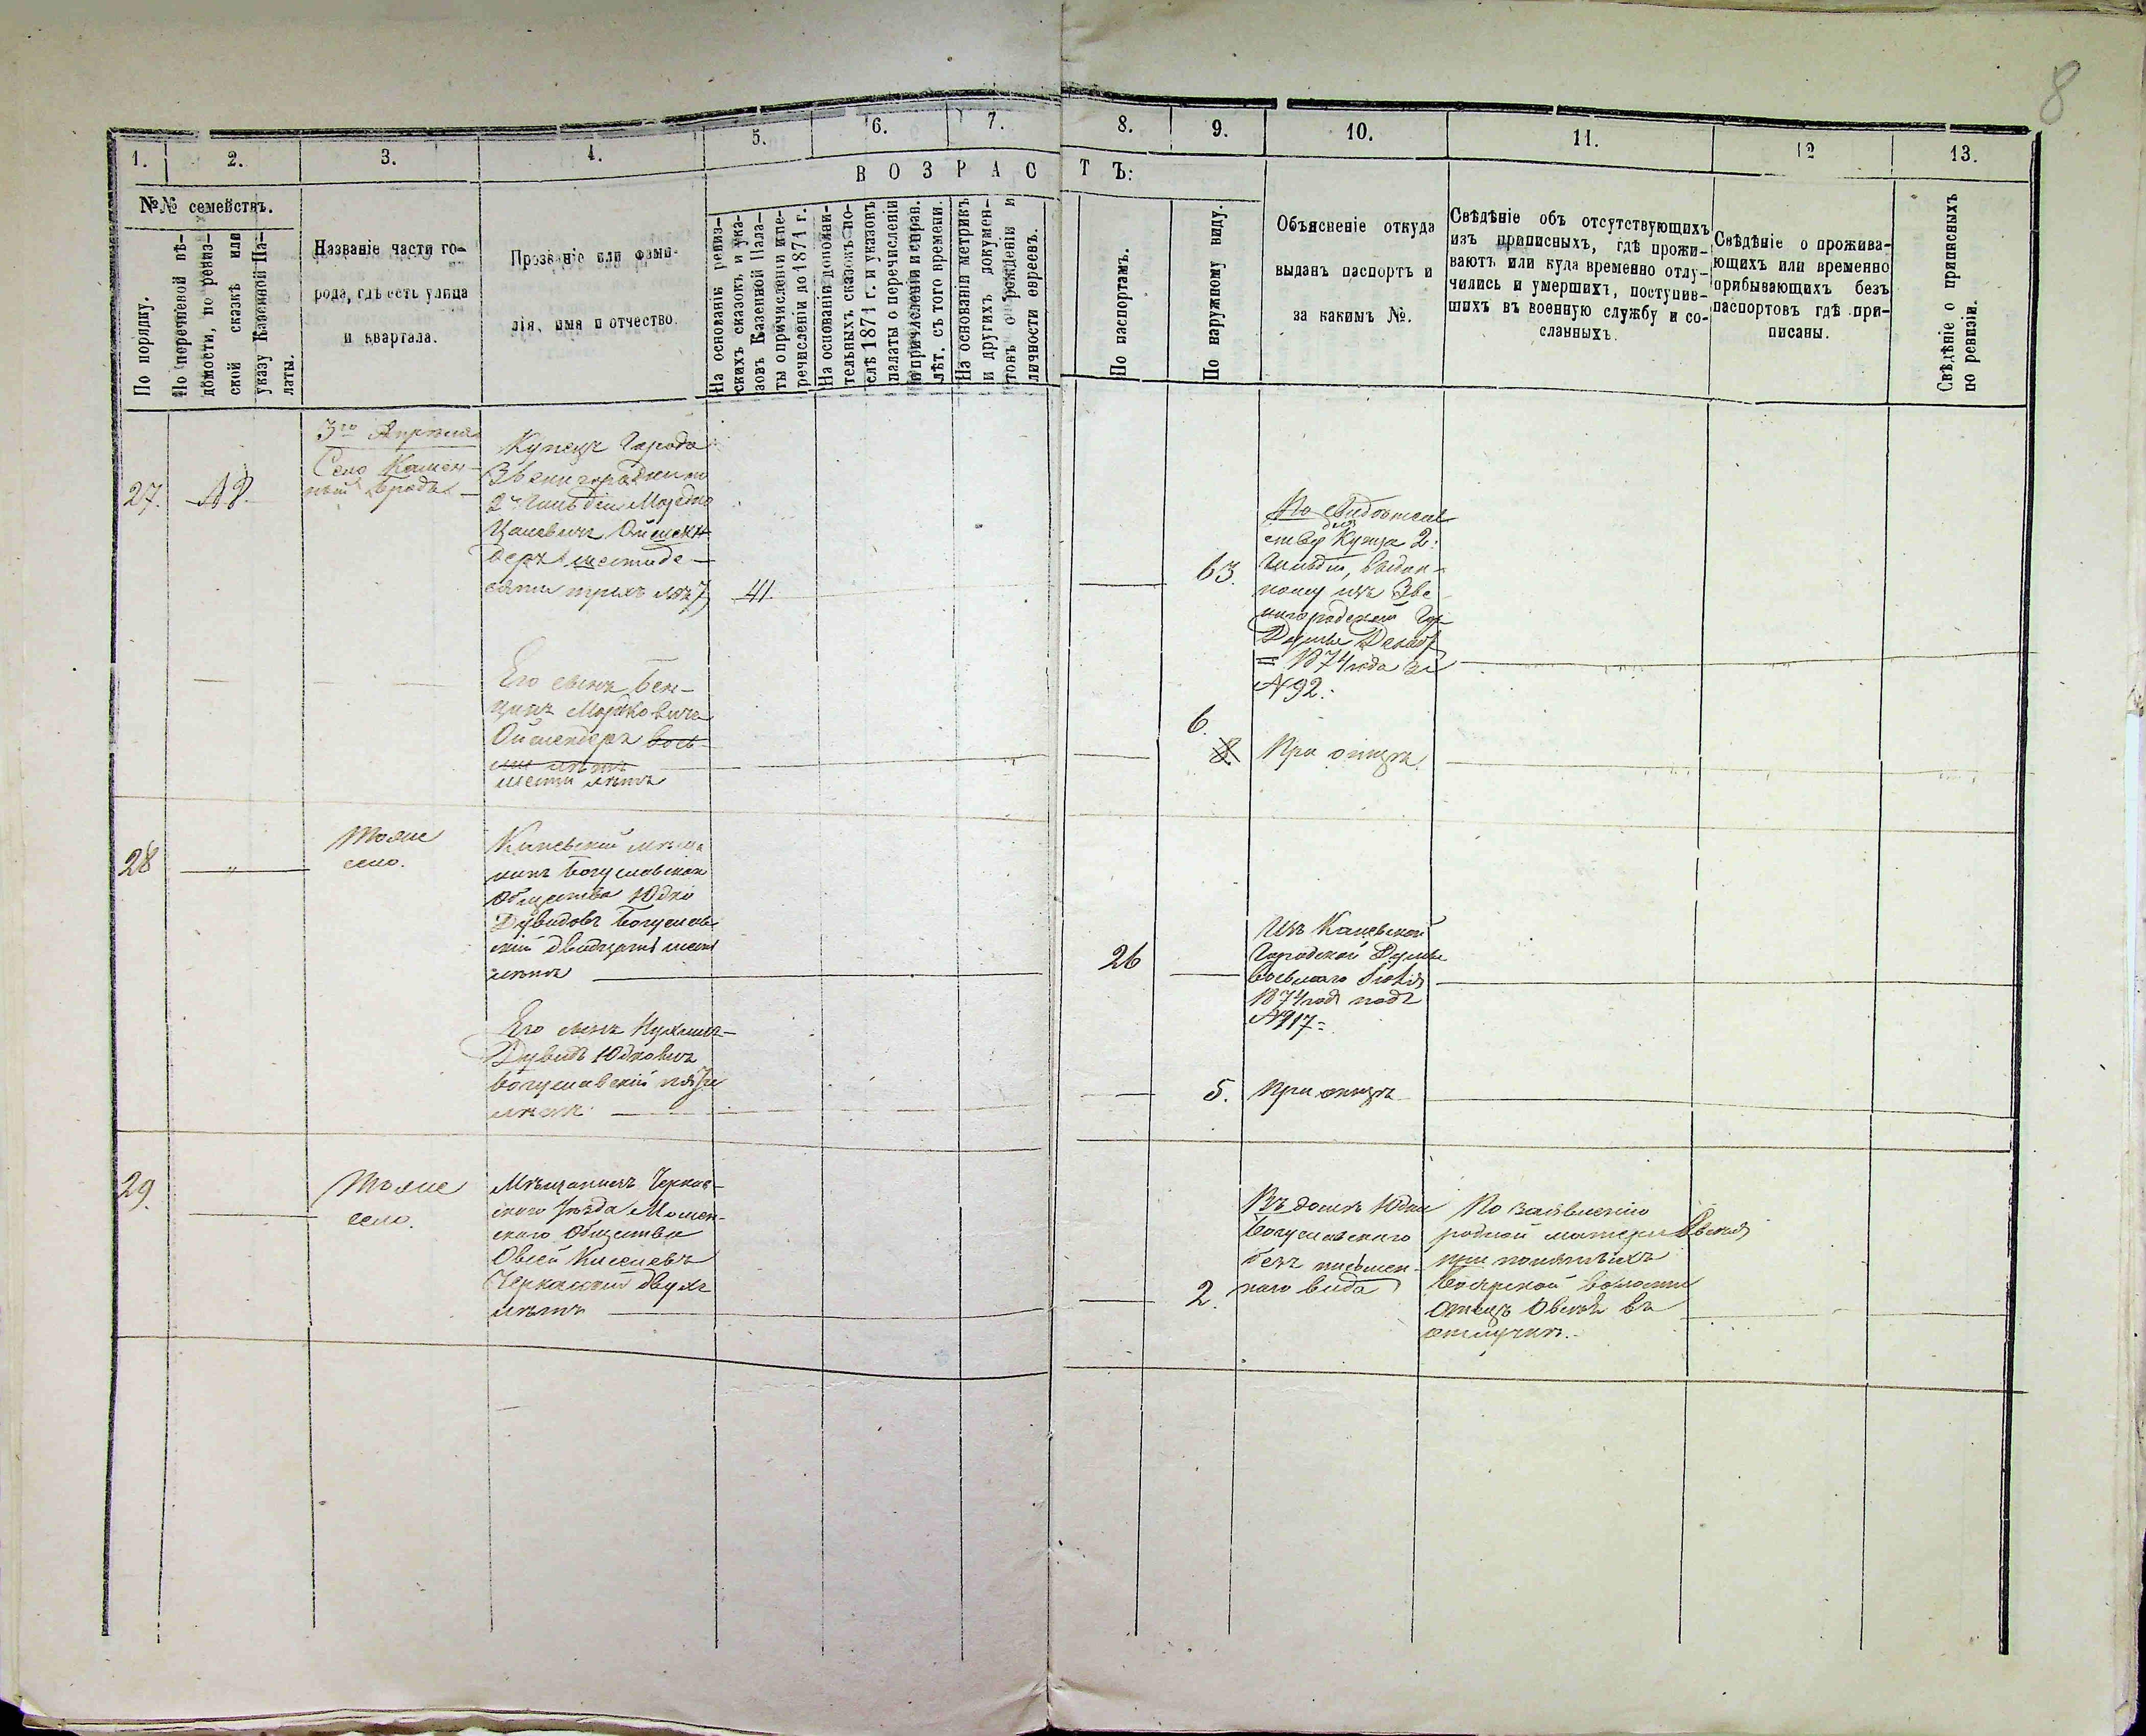 8
1. 2. 3. 4. 5. 6. 7. 8. 9. 10. 11. 12 13.
ВОЗРАСТЪ:
№№ семействъ.
По порядку.
По перечневой вѣ-
домости, по ревиз-
ской сказкѣ или
указу Казенной Па-
латы.
Названіе части го-
рода, гдѣ есть улица
и квартала.
Прозваніе или фами-
лія, имя и отчество.
На основаніи ревиз-
скихъ сказокъ и ука-
зовъ Казенной Пала-
ты о причисленіи и пе-
речисленіи до 1871 г.
На основаніи дополни-
тельныхъ сказокъ по-
слѣ 1871 г. и указовъ
палаты о перечисленіи
и причисленіи и справ.
лѣт. съ того времени.
На основаніи метрикъ
и другихъ докумен-
товъ о рожденіи и
личности евреевъ.
По паспортамъ.
По наружному виду.
Объясненіе откуда
выданъ паспортъ и
за какимъ №.
Свѣдѣніе объ отсутствующихъ
изъ приписныхъ, гдѣ прожи-
ваютъ или куда временно отлу-
чились и умершихъ, поступив-
шихъ въ военную службу и со-
сланныхъ.
Свѣдѣніе о прожива-
ющихъ или временно
прибывающихъ безъ
паспортовъ гдѣ при-
писаны.
Свѣдѣніе о приписныхъ
по ревизіи.
27.
3го Апреля
Село Камен-
ный Бродъ
Купецъ Города
Звенигородки
2й Гильдіи
шестиде-
сяти трехъ лѣтъ
41.
63.
По свидѣтель
ству Купца 2:
Гильдіи, выдан-
ному изъ Зве
нигородской Гор
Думы Декабр
1874 года за
№ 92.
Его сынъ Бен-
ціонъ Морковичъ
Ойшендеръ вось
ми лѣтъ
шести лѣтъ
6.
8.
При отцѣ
28
Тоже
село.
Каневскій мѣща
нинъ Богуславскаго
Общества Юдко
Дувидовъ Богуслав
скій двадцати шести
лѣтъ
26
Изъ Каневской
Городской Думы
восьмаго
1874 года подъ
№ 117
Его сынъ Нухимъ-
Дувидъ Юдковичъ
Богуславскій пяти
лѣтъ
5.
При отцѣ
29.
Тоже
село.
Мѣщанинъ Черкас-
скаго уѣзда Мошен-
скаго Общества
Овсей Киселевъ
Черкасскій двухъ
лѣтъ
2.
Въ домѣ Юдки
Богуславскаго
безъ письмен-
наго вида
По заявленію
родной матери
при понятыхъ
Боярской волости
Отецъ Овсѣя въ
отлучкѣ.